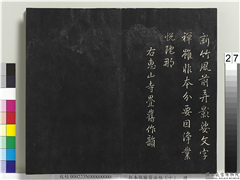 新竹風前弄影婆文字
禪雖非本分要因淨業
悅龍那
右惠山寺疊舊作韻